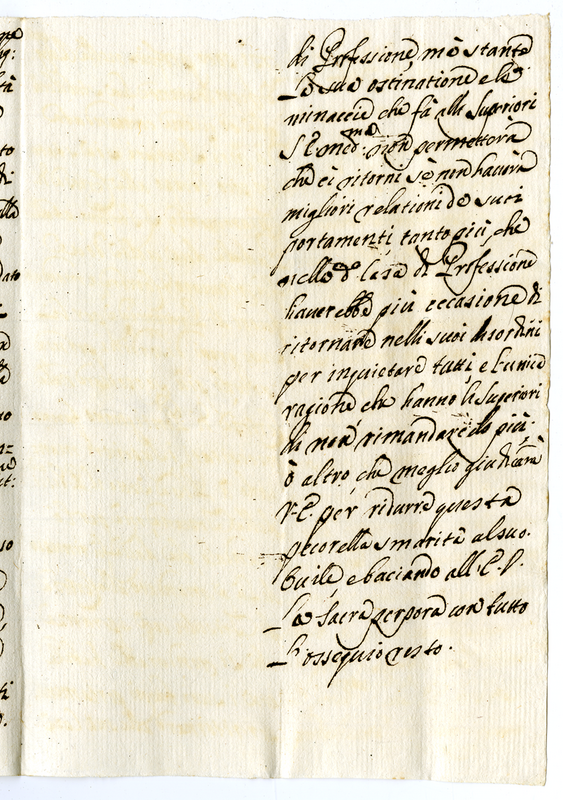 di Professione, mà stante
La sua ostinatione e le
minaccie che fà alli Superiori
S. E. med.ma non permetterà
che ci ritorni sè non haverà
migliori relationi de suoi
portamenti tanto più, che
nella d.a Casa di Professione
haverebbe più occasione di
ritornare nelli suoi disordini
per inquietare tutti, e l'unica
ragione che hanno li Superiori
di non rimandarcelo più.
ò altro che meglio giudicarà
V. E. per ridurre questa
pecorella smarita al suo
Ovile e baciando all' E. V.
La Sacra porpora con tutto
L'ossequio resto.